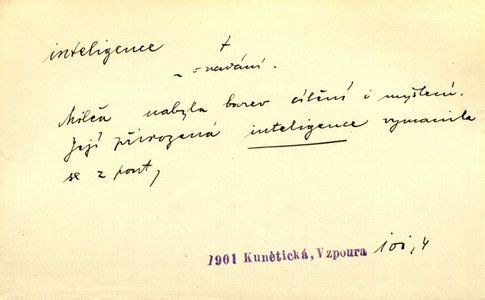 inteligence †
~ = navání.
Milča nabyla barev cítění i myšlení.
Její přirozená inteligence vymanila
se z pout,
1901 Kunětická, Vzpoura 101,4